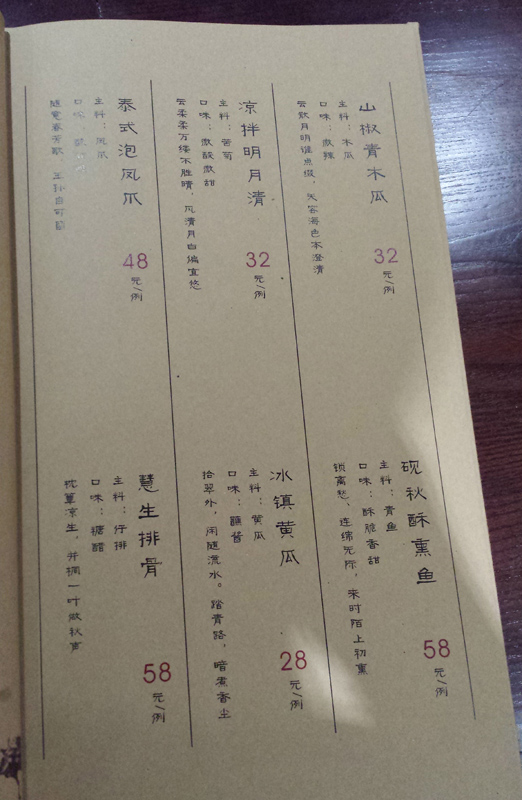 山椒青木瓜
主料：木瓜
口味：微辣
云散月明谁点缀，天容海色本澄清
32
元/例
凉拌明月清
主料：苦菊
口味：微酸微甜
云柔柔万缕不胜晴，风清月白偏宜悠
32
元/例
泰式泡凤爪
主料：凤爪
口味：
随意春芳歇 王孙自可留
48
元/例
砚秋酥熏鱼
主料：青鱼
口味：酥脆香甜
锁离愁、连绵无际，来时陌上初熏
58
元/例
冰镇黄瓜
主料：黄瓜
口味：蘸酱
拾翠外，闲随流水。踏青路，暗惹香尘
28
元/例
慧生排骨
主料：仔排
口味：糖醋
枕簟凉生，并桐一叶做秋声
58
元/例